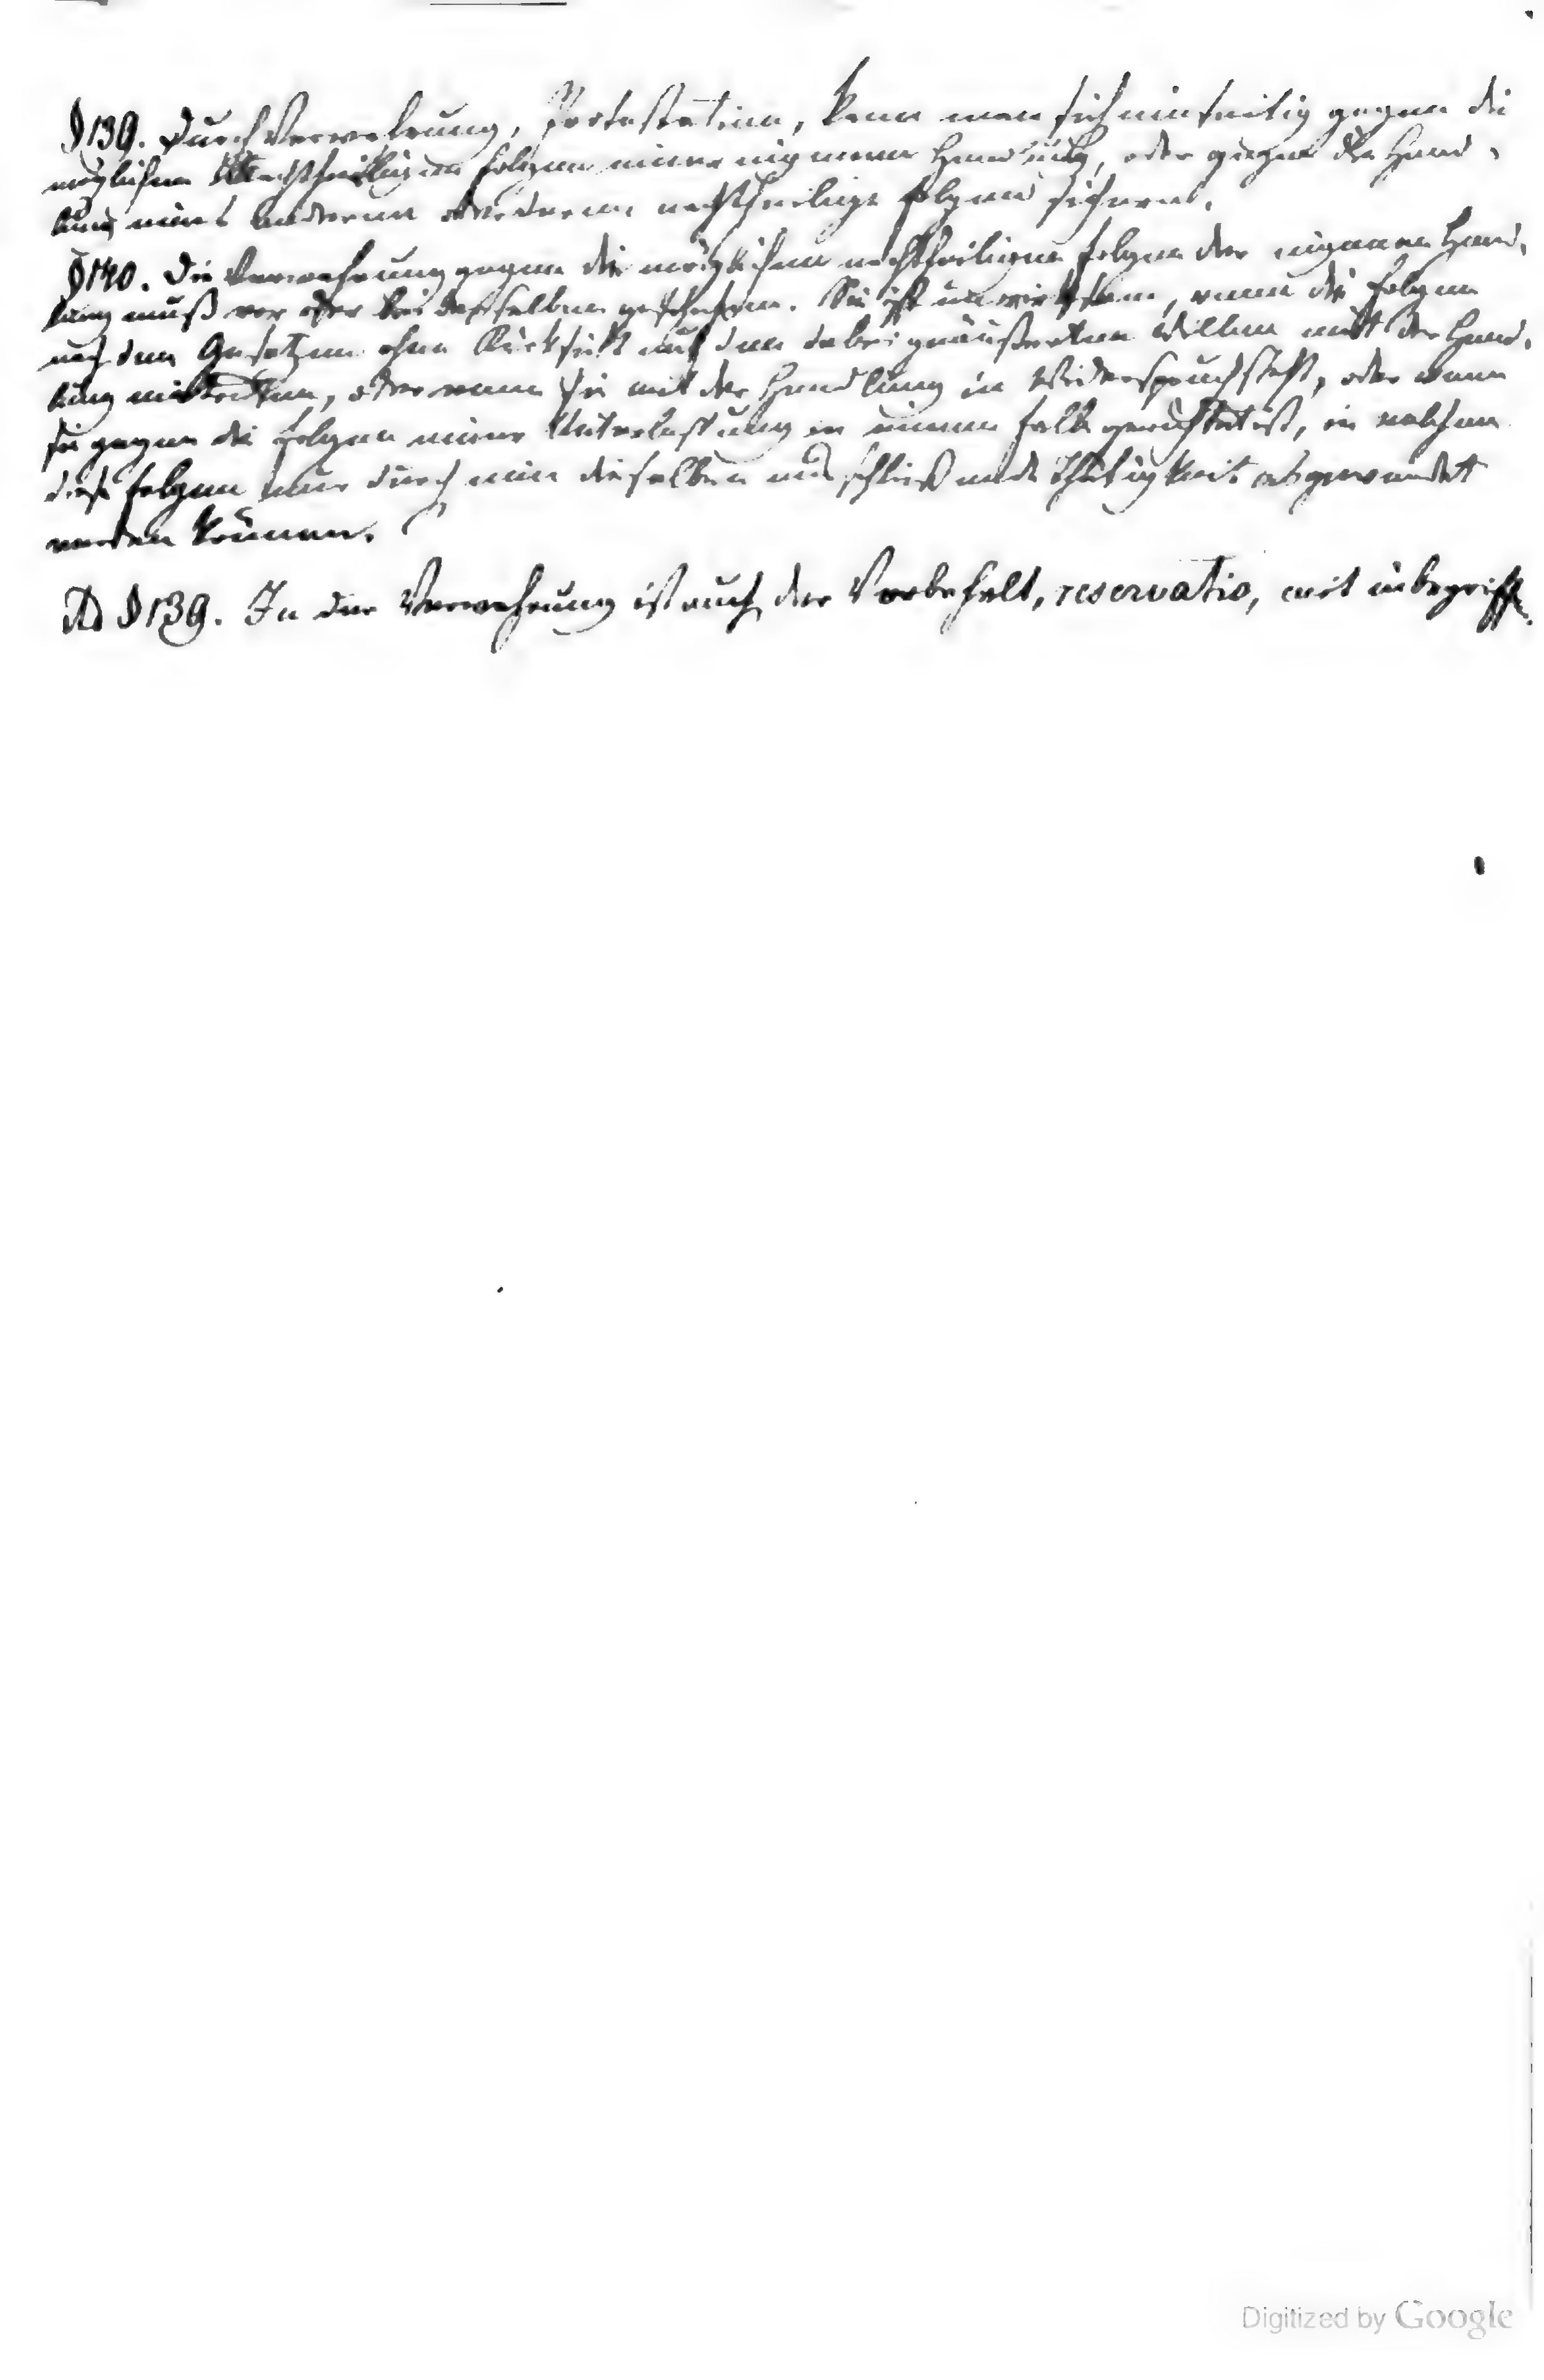 § 139. Durch Verwahrung, Protestation, kann man sich einseitig gegen die
möglichen nachtheiligen Folgen einer eigenen Handlung, oder gegen die Hand-
lung eines anderen nachtheilige Folgen sichern.
§ 140. Die Verwahrung gegen die möglichen nachtheiligen Folgen der eigenen Hand-
lung muß vor oder bei derselben geschehen. Sie ist unwirksam, wenn die Folgen
nach den Gesetzen ohne Rücksicht auf den dabei geäußerten Willen mit der Hand-
lung eintreten, oder wenn sie mit der Handlung in Widerspruch steht, oder wenn
sie gegen die Folgen einer Unterlassung in einem Falle gerichtet ist, in welchem
diese Folgen nur durch eine dieselben ausschließende Thätigkeit abgewendet
werden können.
Ad § 139. In der Verwahrung ist auch der Vorbehalt, reservatio, mit inbegriffen.
Digitized by Google